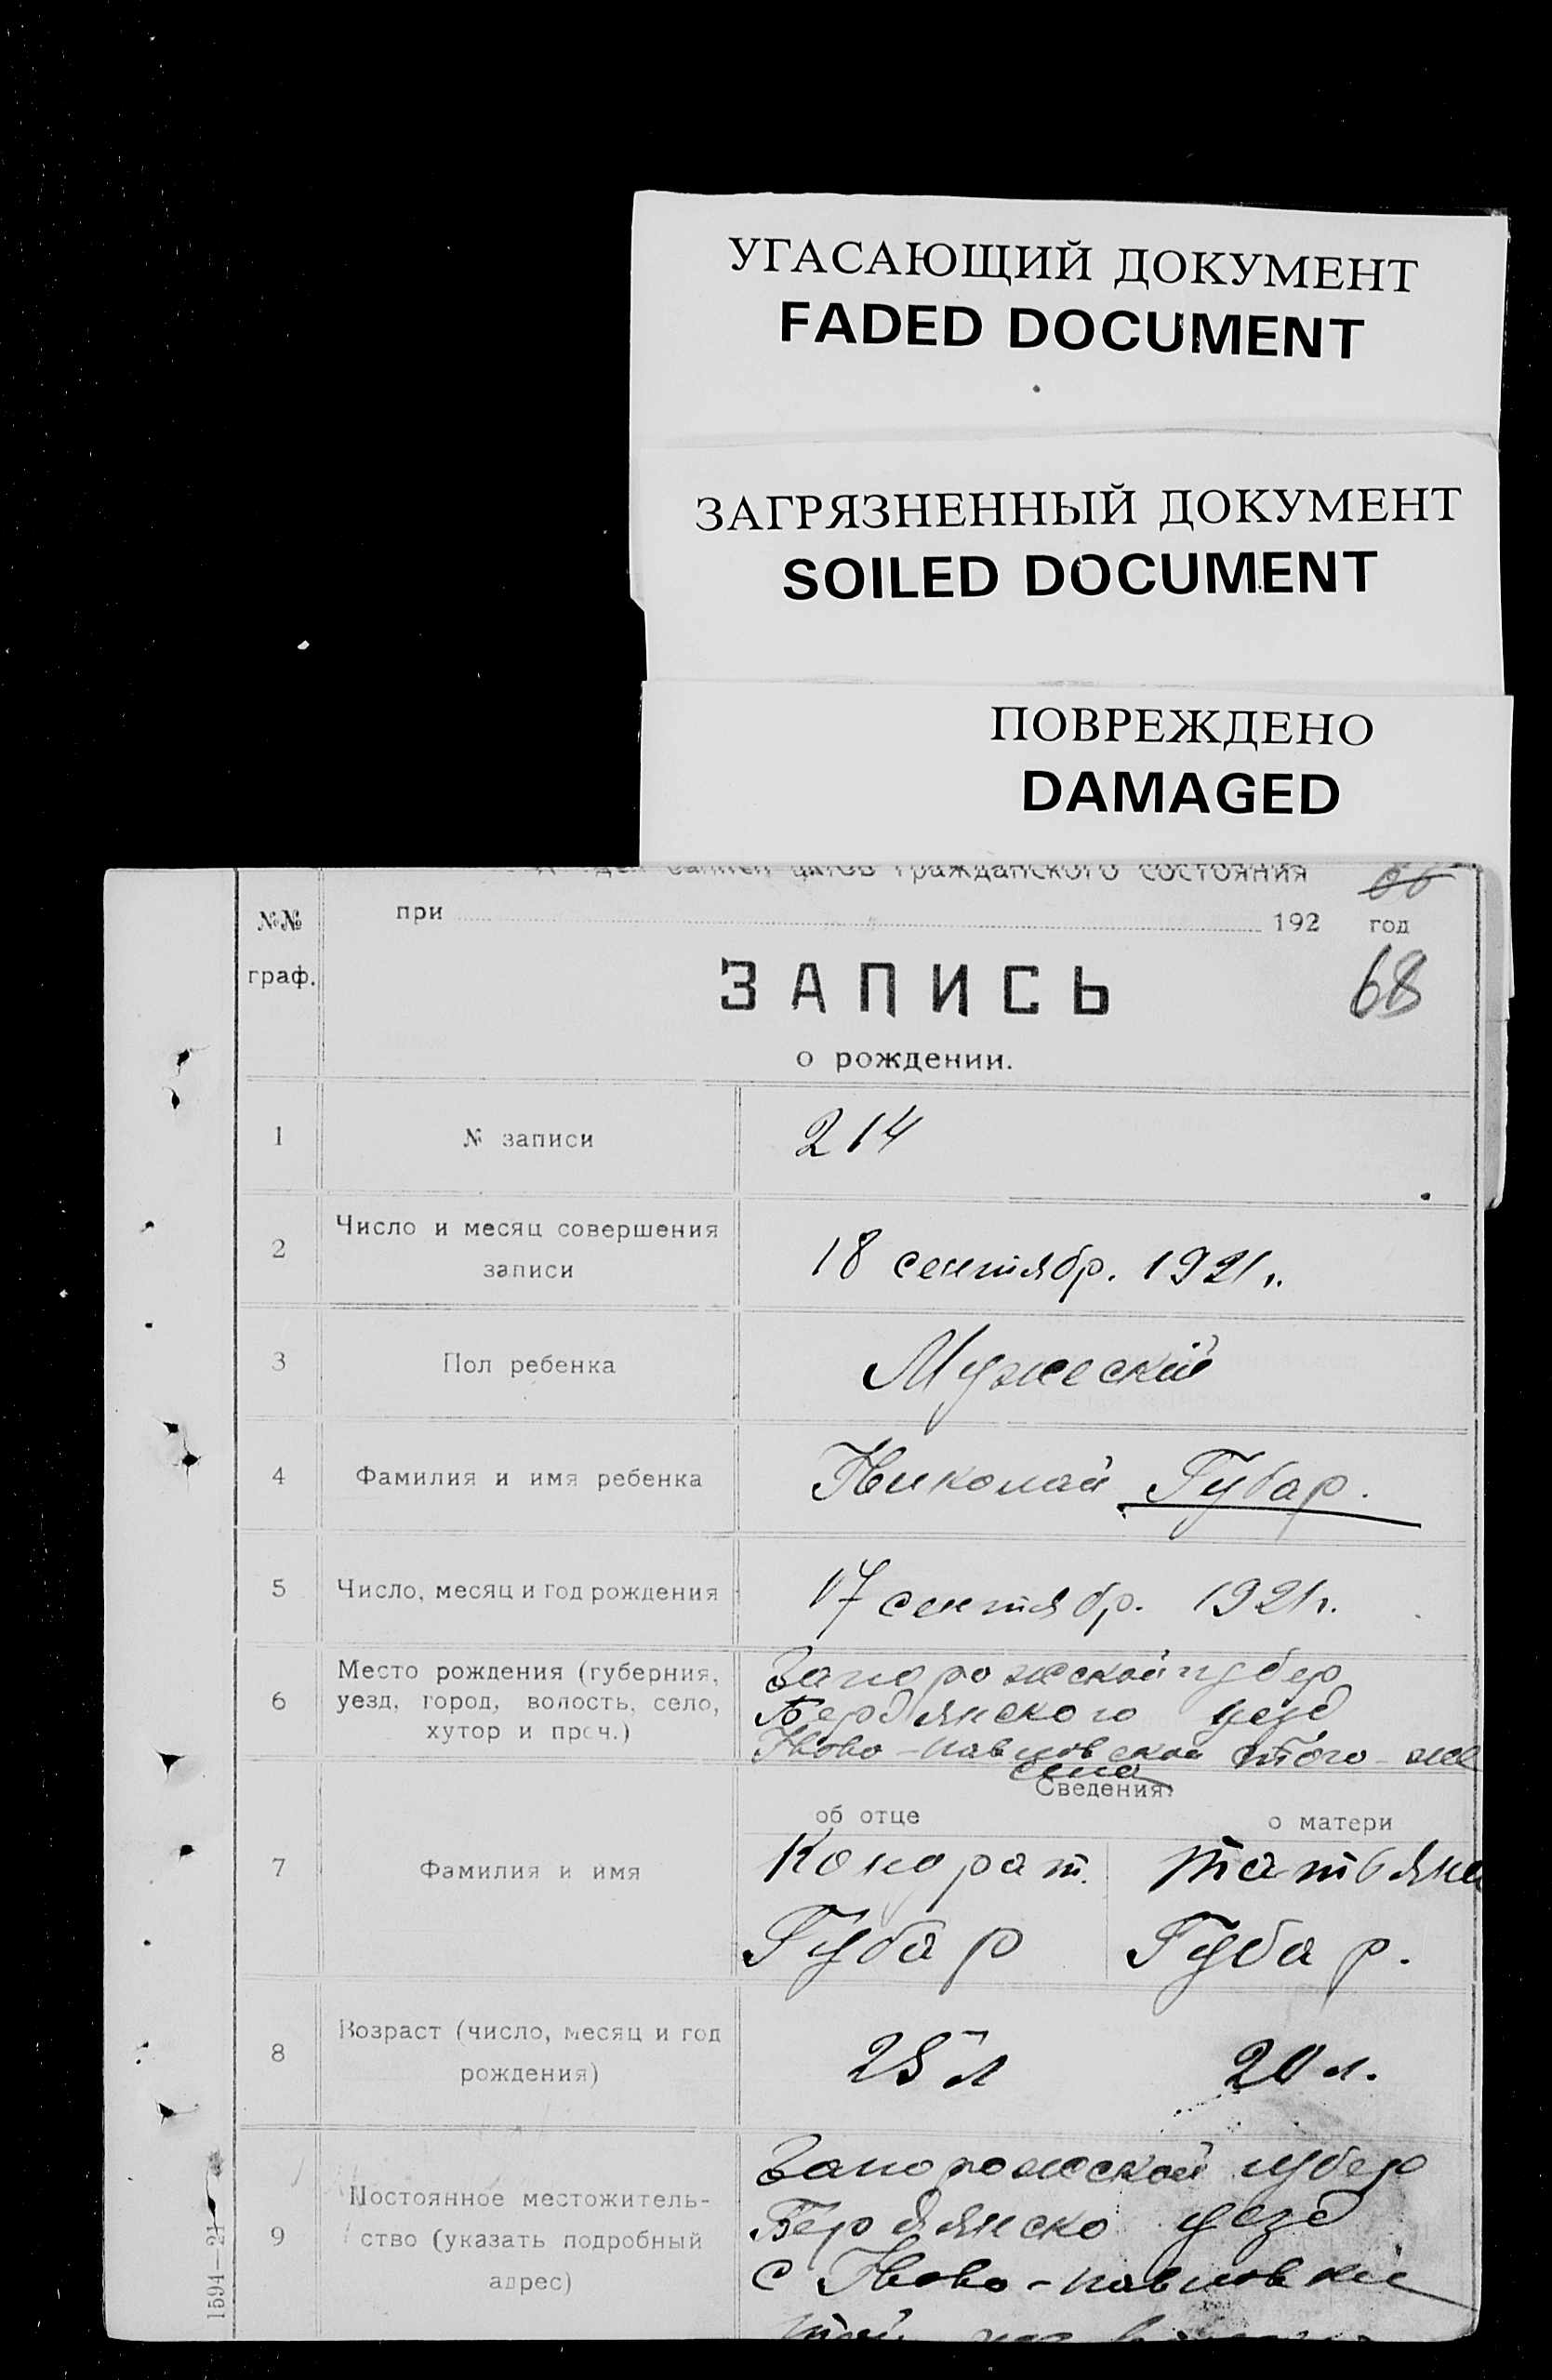 УГАСАЮЩИЙ ДОКУМЕНТ
FADED DOCUMENT
ЗАГРЯЗНЕННЫЙ ДОКУМЕНТ
SOILED DOCUMENT
ПОВРЕЖДЕНО
DAMAGED
записей актов гражданского состояния
№№ граф. при 192 год
68
ЗАПИСЬ
о рождении.
1 № записи 214
2 Число и месяц совершения записи 18 сентябр. 1921 г.
3 Пол ребенка Мужеский
4 Фамилия и имя ребенка Николай Губар.
5 Число, месяц и год рождения 17 сентябр. 1921 г.
6 Место рождения (губерния, уезд, город, волость, село, хутор и проч.)
Запорожской губер
Бердянского уезд
Ново-павловской того-же
села
Сведения:
об отце о матери
7 Фамилия и имя
Кондрат. Татьяна
Губар Губар.
8 Возраст (число, месяц и год рождения) 25 л 20 л.
9 Постоянное местожительство (указать подробный адрес)
Запорожской губер
Бердянско уезд
с Ново-павловки
1594—21